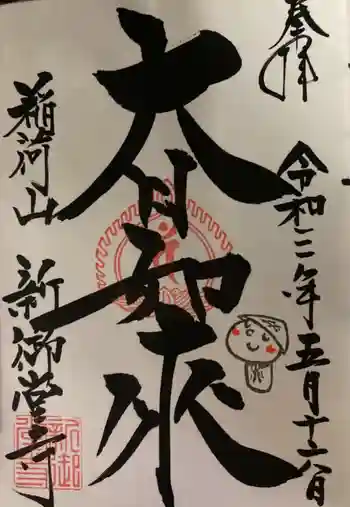 奉拝
令和二年五月十六日
大日如来
稲荷山
新御堂寺
新御
堂寺